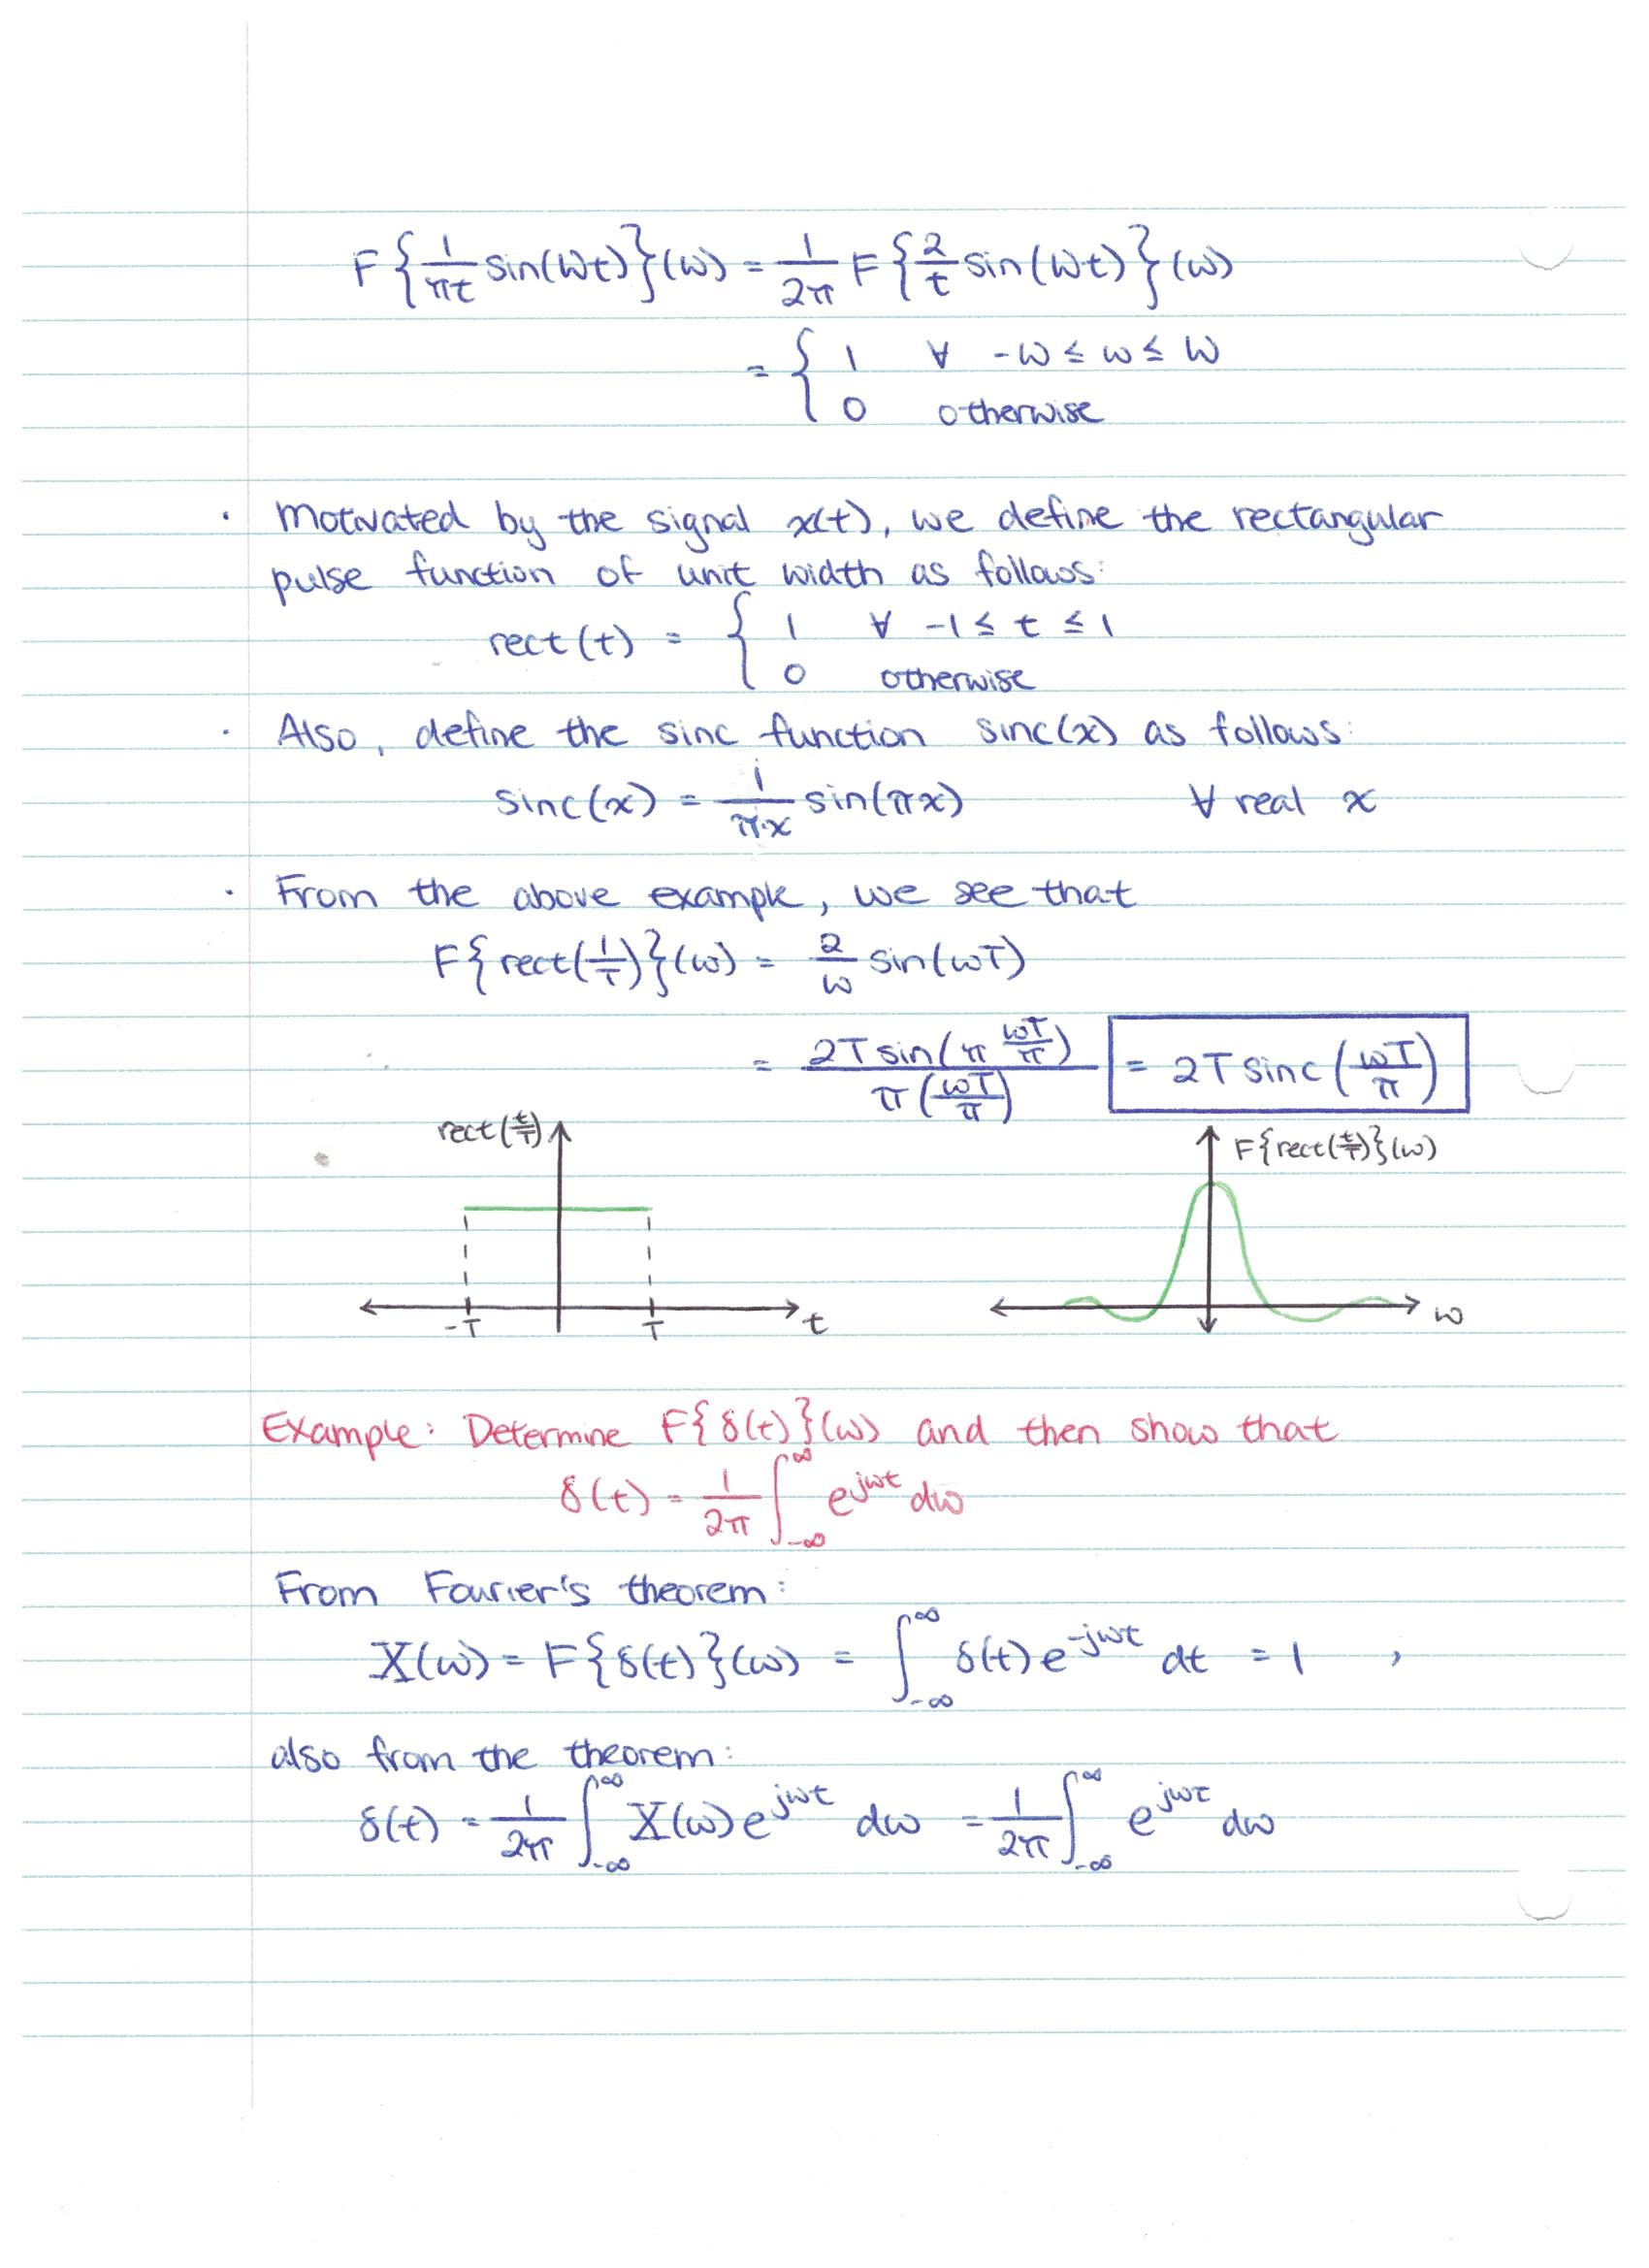 F{1/(πt) sin(Wt)}(ω) = 1/(2π) F{2/t sin(Wt)}(ω)
= { 1 ∀ -W ≤ ω ≤ W
0 otherwise
· Motivated by the signal x(t), we define the rectangular
pulse function of unit width as follows:
rect(t) = { 1 ∀ -1 ≤ t ≤ 1
0 otherwise
· Also, define the sinc function sinc(x) as follows:
sinc(x) = 1/(π·x) sin(πx) ∀ real x
· From the above example, we see that
F{rect(1/T)}(ω) = 2/ω sin(ωT)
= 2T sin(π ωT/π) / π(ωT/π) = 2T sinc(ωT/π)
rect(t/T)
F{rect(t/T)}(ω)
-T T t
ω
Example: Determine F{δ(t)}(ω) and then show that
δ(t) = 1/(2π) ∫_{-∞}^{∞} e^{jωt} dω
From Fourier's theorem:
X(ω) = F{δ(t)}(ω) = ∫_{-∞}^{∞} δ(t) e^{-jωt} dt = 1 ,
also from the theorem:
δ(t) = 1/(2π) ∫_{-∞}^{∞} X(ω) e^{jωt} dω = 1/(2π) ∫_{-∞}^{∞} e^{jωt} dω